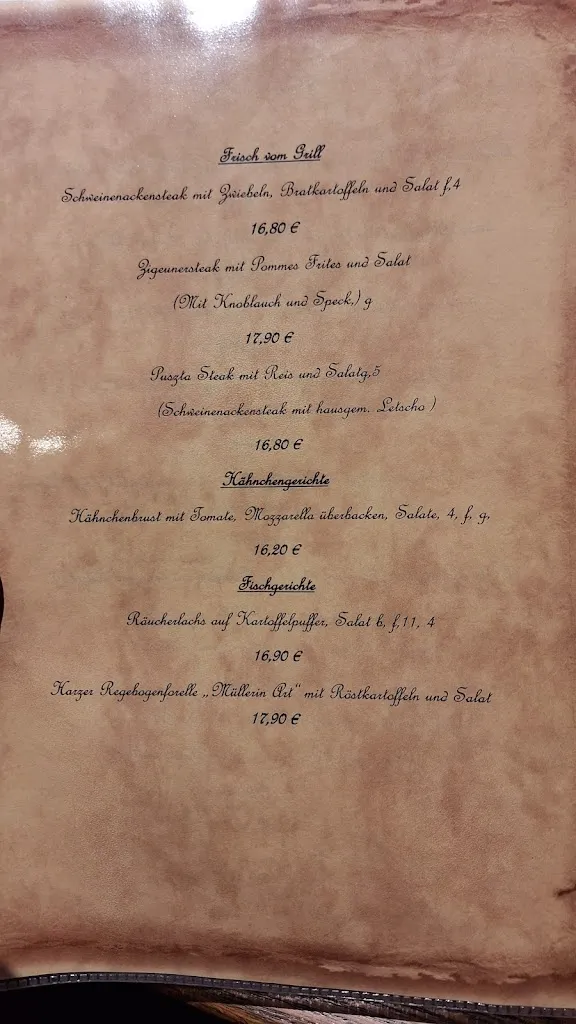 Frisch vom Grill
Schweinenackensteak mit Zwiebeln, Bratkartoffeln und Salat f,4
16,80 €
Zigeunersteak mit Pommes Frites und Salat
(Mit Knoblauch und Speck,) g
17,90 €
Puszta Steak mit Reis und Salatg,5
(Schweinenackensteak mit hausgem. Letscho )
16,80 €
Hähnchengerichte
Hähnchenbrust mit Tomate, Mozzarella überbacken, Salate, 4, f, g,
16,20 €
Fischgerichte
Räucherlachs auf Kartoffelpuffer, Salat b, f,11, 4
16,90 €
Harzer Regebogenforelle „Müllerin Art“ mit Röstkartoffeln und Salat
17,90 €